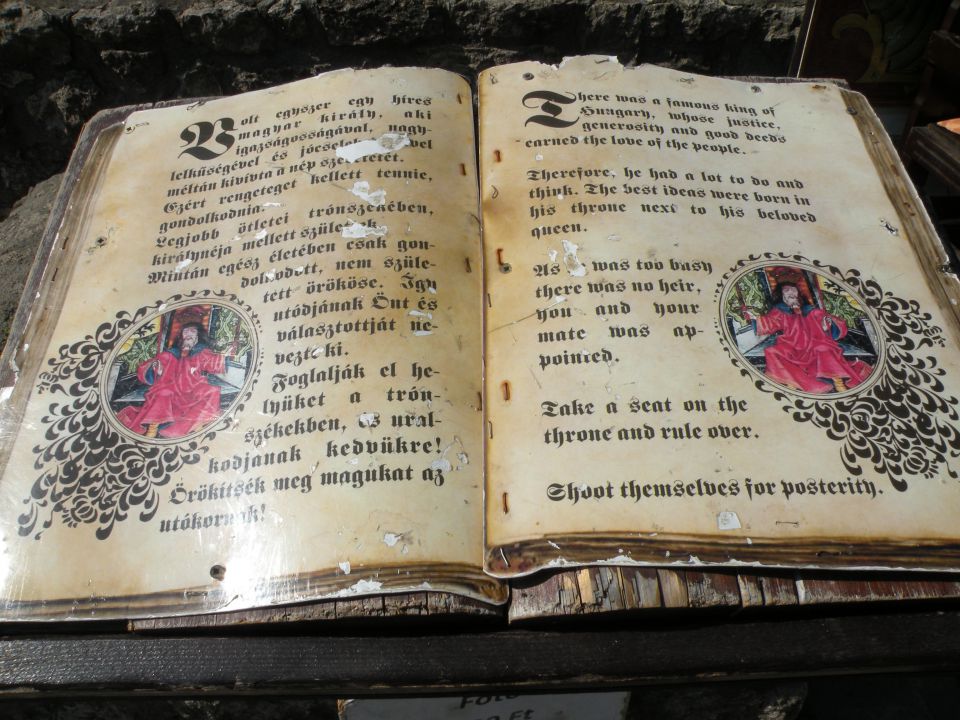 Volt egyszer egy híres
magyar király, aki
igazságosságával, nagy-
lelkűségével és
méltán kivívta a nép
Ezért rengeteget kellett tennie,
gondolkodnia.
Legjobb ötletei trónszékében,
királynéja mellett
Miután egész életében csak gon-
dolkodott, nem szüle-
tett örököse. Így
utódjának Önt és
választottját ne-
vezte ki.
Foglalják el he-
lyüket a trón-
székekben, és ural-
kodjanak kedvükre!
Örökítsék meg magukat az
utókornak!
There was a famous king of
Hungary, whose justice,
generosity and good deeds
earned the love of the people.
Therefore, he had a lot to do and
think. The best ideas were born in
his throne next to his beloved
queen.
As was too busy
there was no heir,
you and your
mate was ap-
pointed.
Take a seat on the
throne and rule over.
Shoot themselves for posterity.
Ft